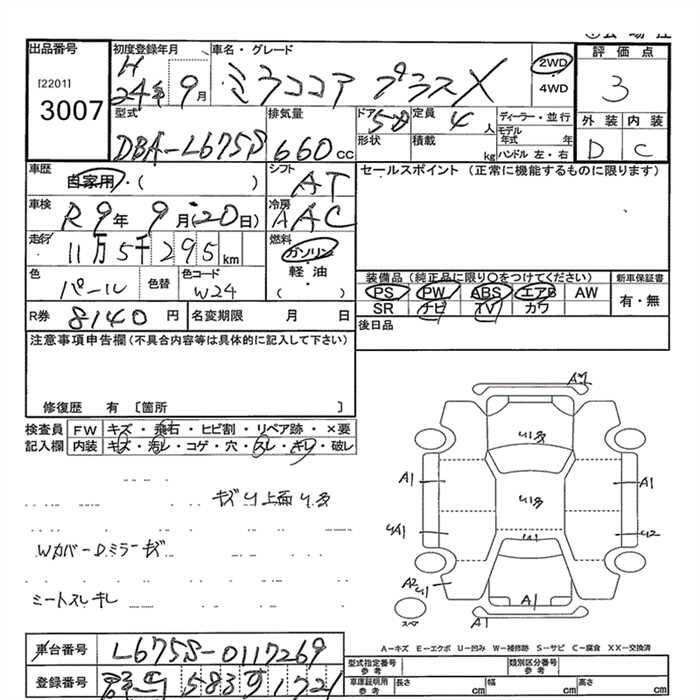 出品番号
[2201]
3007
初度登録年月
H
24年 9月
車名・グレード
ミラココア プラスX
2WD
4WD
評価点
3
外装 内装
D C
型式
DBA-L675S
排気量
660cc
ドア 5D
形状
定員 4人
積載 kg
ディーラー・並行
モデル年式 年
ハンドル 左・右
車歴
自家用・( )
シフト
AT
セールスポイント(正常に機能するものに限ります)
車検
R9年 9月(20日)
冷房
AAC
走行
11万5千295km
燃料
ガソリン
軽・油
( )
色
パール
色替
色コード
W24
装備品(純正品に限り○をつけてください)
PS PW ABS エアB AW
SR ナビ TV カワ
新車保証書
有・無
R券 8140円
名変期限 月 日
後日品
注意事項申告欄(不具合内容等は具体的に記入して下さい)
修復歴 有 〔箇所 〕
検査員
記入欄
FW キズ・飛石・ヒビ割・リペア跡・×要
内装 キズ・汚レ・コゲ・穴・スレ・キレ・破レ
キズU上面U多
WカバーDミラーキズ
シートスレキレ
U1多
A1 U1多 A1
U1
A2 U1
A1
スペ
A1
A-キズ E-エクボ U-凹み W-補修跡 S-サビ C-腐食 XX-交換済
車台番号
L675S-0117269
登録番号
583 1721
型式指定番号
参考
類別区分番号
参考
車庫証明用
参考
長さ cm
幅 cm
高さ cm